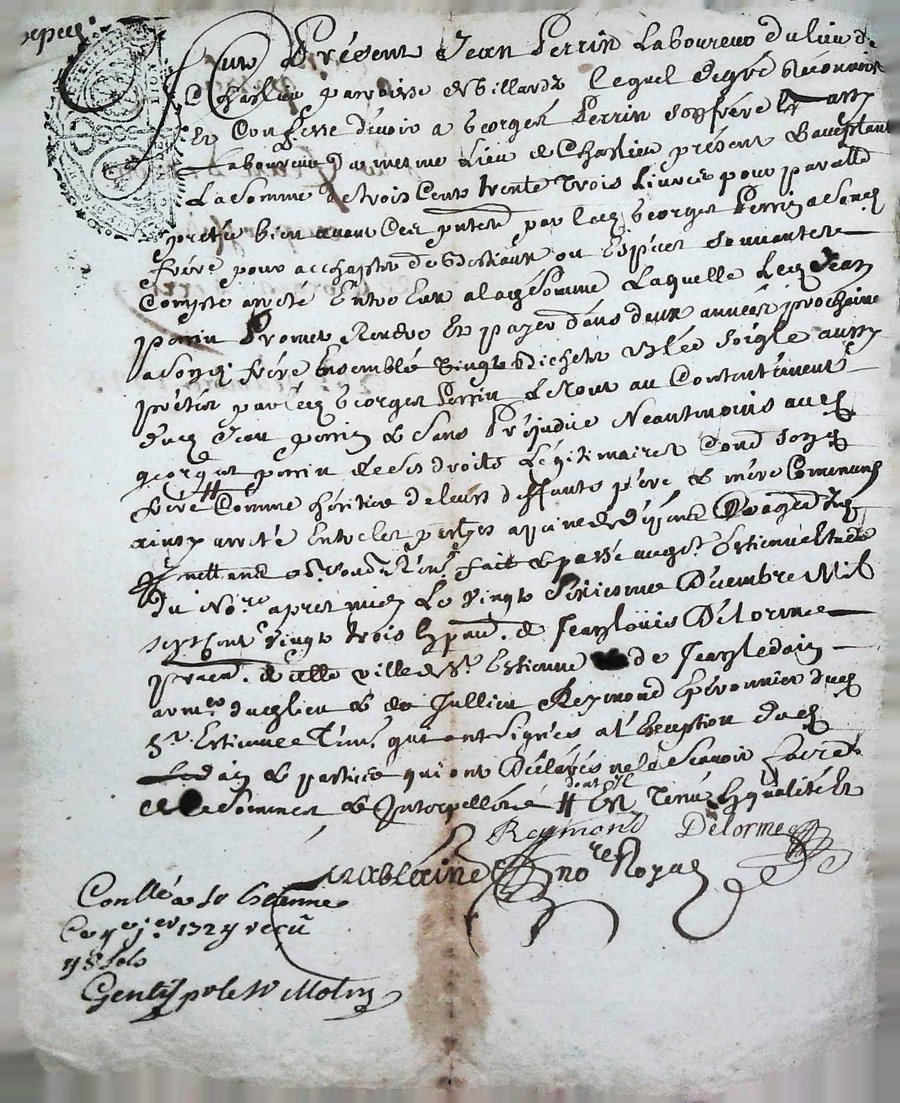 fut Présent Jean Perrin Laboureur du lieu de
Charlieu parroisse de Villards lequel de gré Reconnoit
Et Confesse devoir a Georges Perrin son frére aussy
Laboureur du mesme Lieu de Charlieu présent & acceptant
La somme de trois Cents trente trois Livres pour pareille
pretée bien avant Ces pntes par led Georges Perrin a son
frére pour acchapter de Bestiaux ou Espéces suivant
Compte areté Entre Eux a lad somme Laquelle Led Jean
perrin Promet Rendre Et payer dans deux années prochaine
a son frére Ensemble Vingt Bichets Bled soigle aussy
prétés par led Georges Perrin Le tout au Contentement
dud Jean perrin & sans Préjudice Neantmoins aud
georges perrin de ses droits Légitimaires son
frére Comme héritier de leurs deffunts pére & mére Communs
ainsy areté Entre les parties a peine de
fait & passé aud St Estienne Etude
du Nore apres midy Le vingt Décembre Mil
sept Cent vingt trois de Jean Loüis Délorme
de cette ville de St Estienne de Jean Ledain
armer dud lieu & de Jullien Reymond Epéronnier dud
St Estienne qui ont signés a l'Exception dud
Ledain & parties qui ont Déclarés ne le scavoir faire
de ce sommés & Interpellées
dont
Reymond Delorme
nore Royal
Conllé a St Etienne
Ce jer 1724 reçu
sols
Gentil pr le Sr Molin